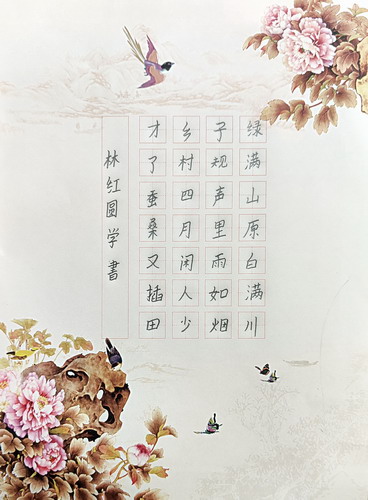 绿满山原白满川
子规声里雨如烟
乡村四月闲人少
才了蚕桑又插田
林红圆学書